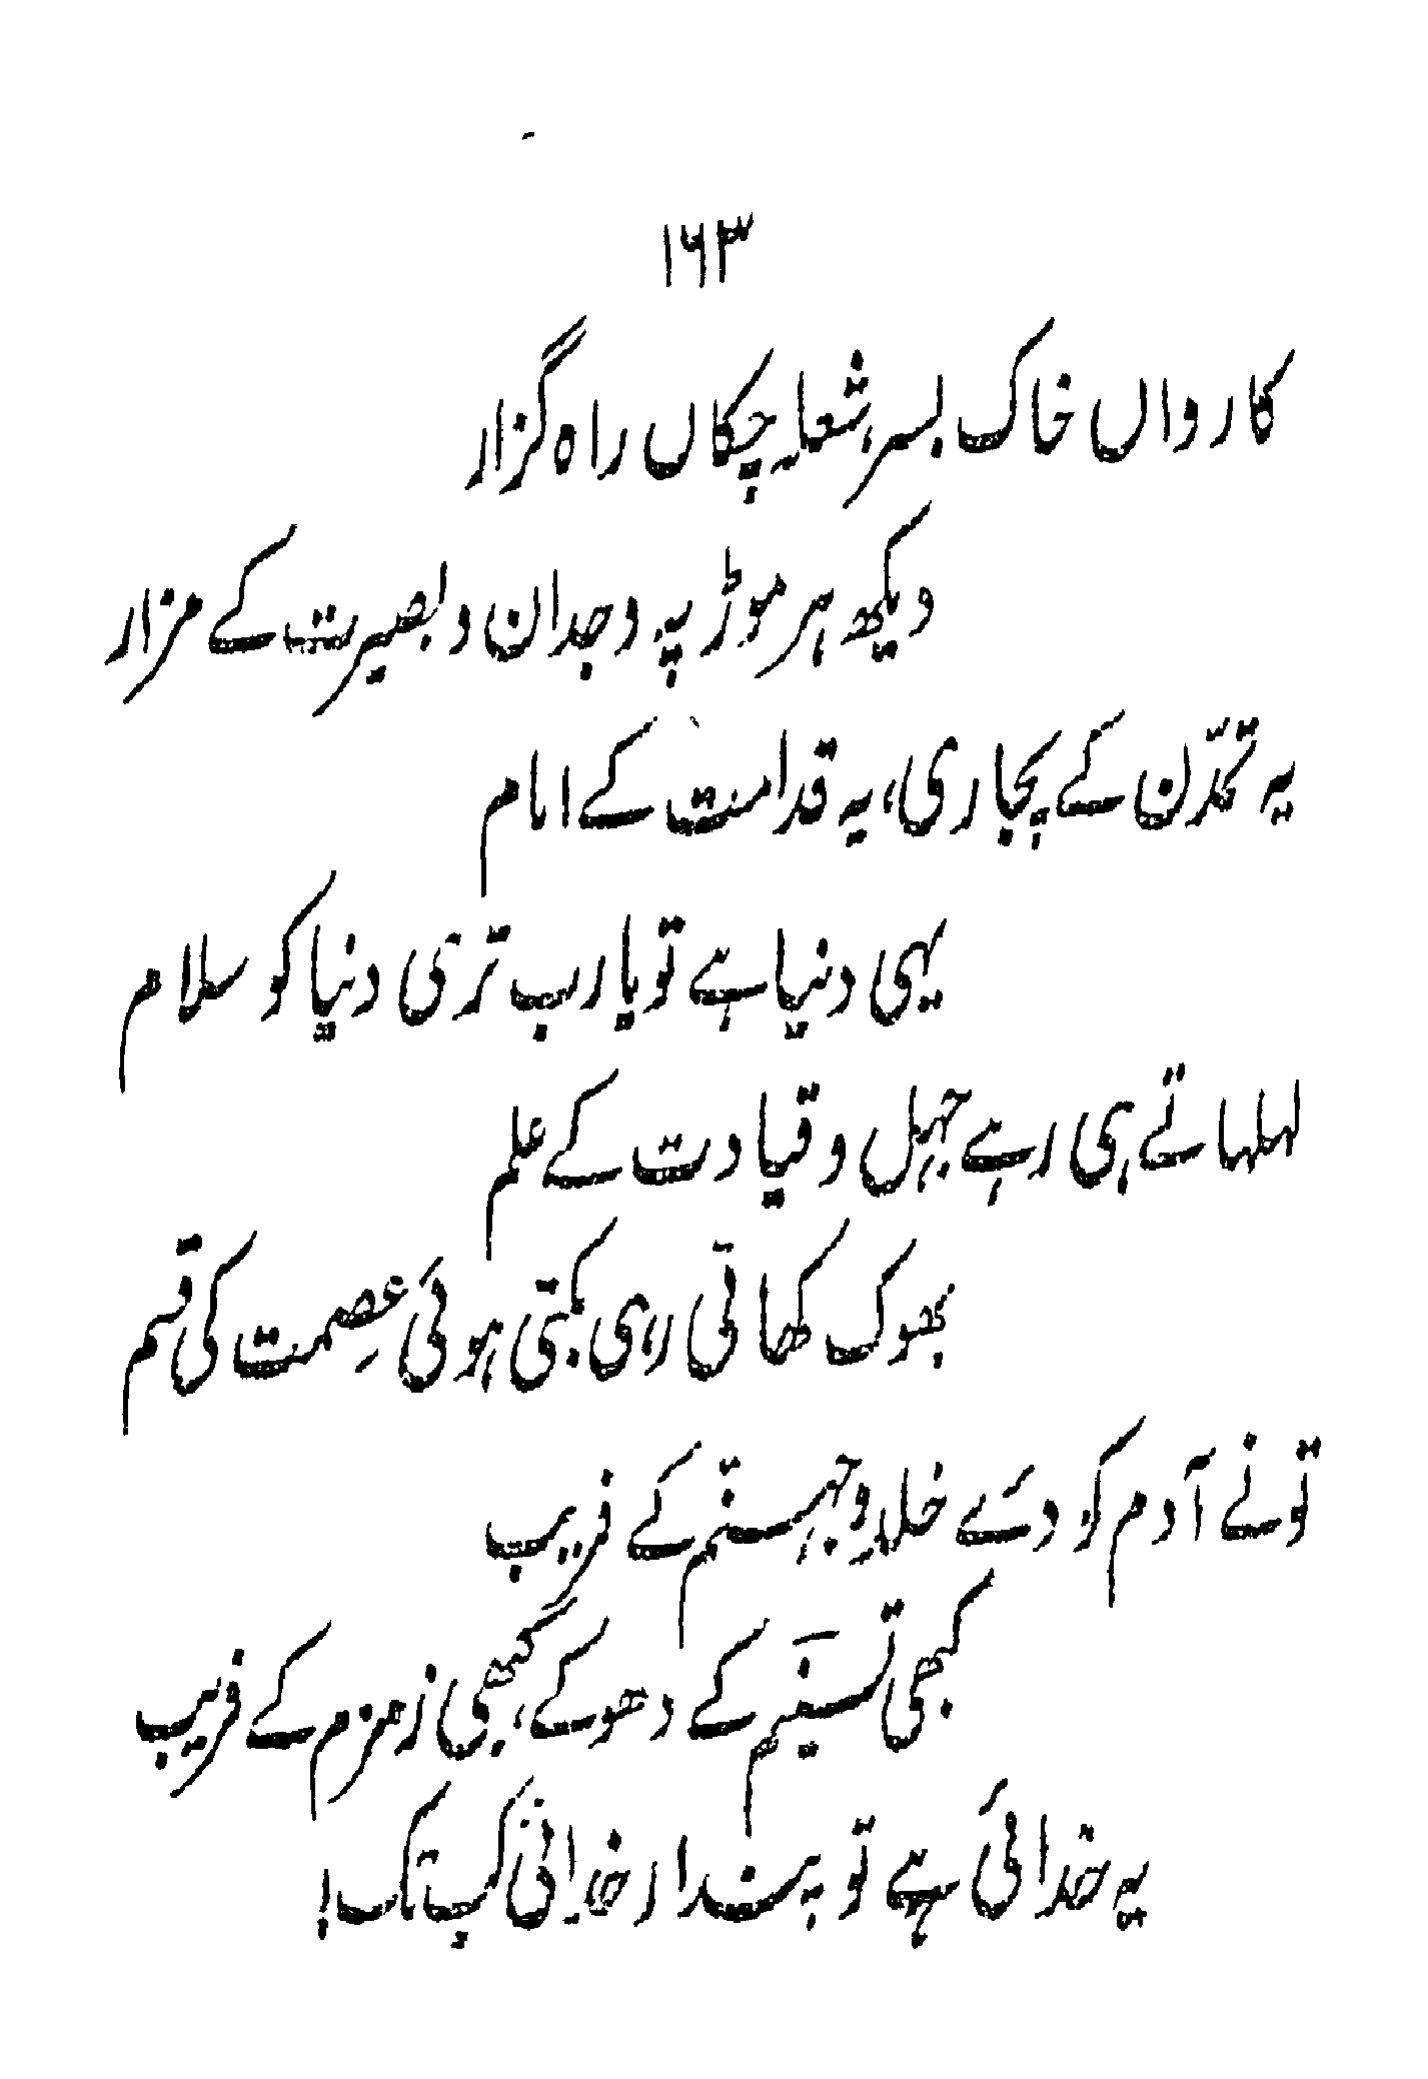 ۱۶۳
کارواں خاک بسر، شعلہ چکاں راہ گزار
دیکھ ہر موڑ پہ وجدان و بصیرت کے مزار
یہ تمدّن کے پجاری، یہ قدامت کے امام
یہی دنیا ہے تو یارب تری دنیا کو سلام
لہلہاتے ہی رہے جہل و قیادت کے علم
بھوک کھاتی رہی بکتی ہوئی عصمت کی قسم
تو نے آدم کو دئے خلد و جہنم کے فریب
کبھی تسنیم کے دھوکے، کبھی زمزم کے فریب
یہ خدائی ہے تو پندار خدائی کب تک!